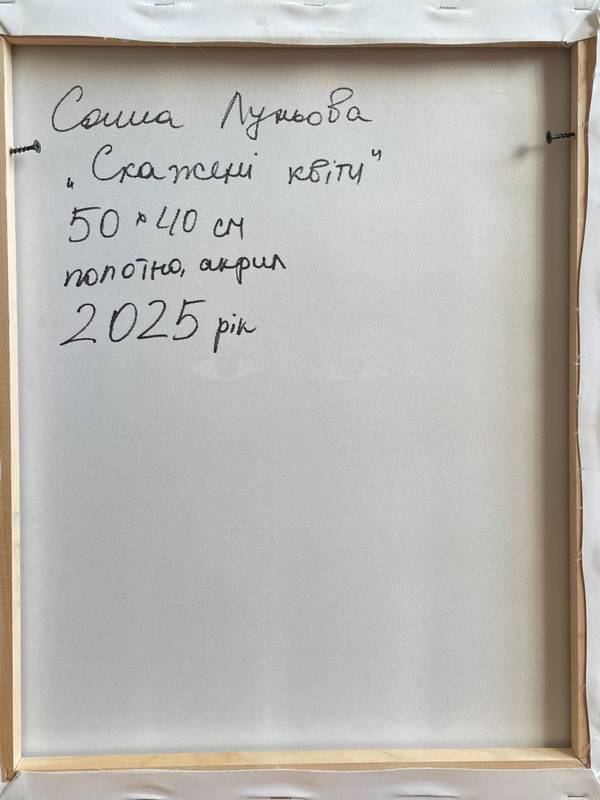 Саша Луньова
„Скажені квіти"
50 × 40 см
полотно, акрил
2025 рік